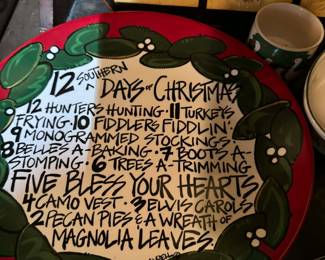 12 SOUTHERN DAYS OF CHRISTMAS
12 HUNTERS HUNTING · 11 TURKEYS
FRYING · 10 FIDDLERS FIDDLIN'
9 MONOGRAMMED STOCKINGS ·
8 BELLES A-BAKING · 7 BOOTS A-
STOMPING · 6 TREES A-TRIMMING
FIVE BLESS YOUR HEARTS
4 CAMO VEST · 3 ELVIS CAROLS
2 PECAN PIES & A WREATH OF
MAGNOLIA LEAVES.